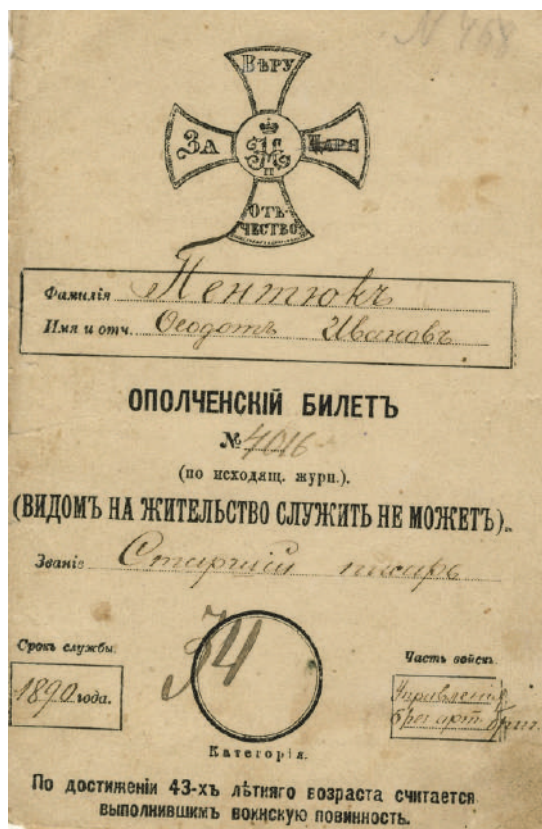 N 468
ВѢРУ
ЗА ЦАРЯ
ОТЕ-
ЧЕСТВО
Фамилія Пентюкъ
Имя и отч. Ѳеодотъ Ивановъ
ОПОЛЧЕНСКІЙ БИЛЕТЪ
№ 4016
(по исходящ. журн.).
(ВИДОМЪ НА ЖИТЕЛЬСТВО СЛУЖИТЬ НЕ МОЖЕТЪ).
Званіе Старшій писарь
34
Срокъ службы.
1890 года.
Часть войскъ.
Управленія
арт. бриг.
Категорія.
По достиженіи 43-хъ лѣтняго возраста считается
выполнившимъ воинскую повинность.